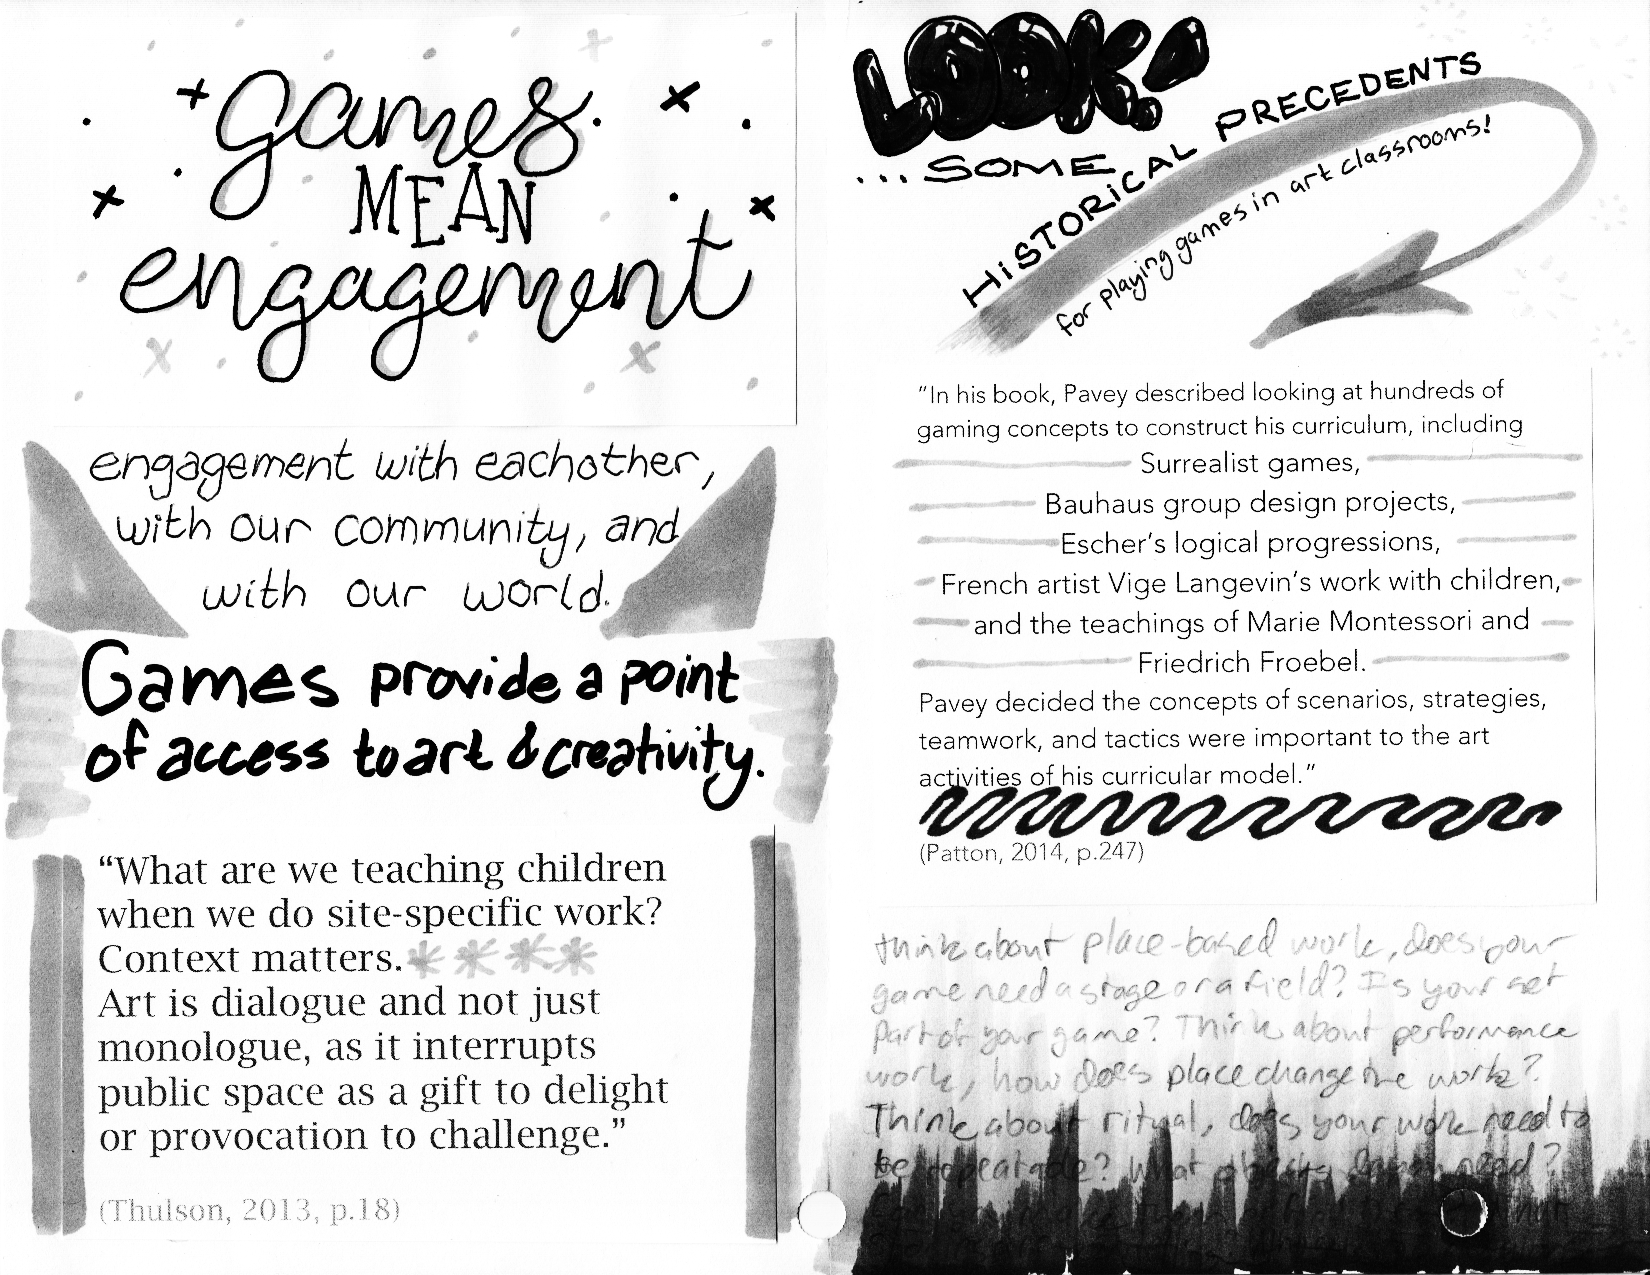 games
MEAN
engagement
engagement with eachother,
with our community, and
with our world.
Games provide a point
of access to art & creativity.
“What are we teaching children
when we do site-specific work?
Context matters.
Art is dialogue and not just
monologue, as it interrupts
public space as a gift to delight
or provocation to challenge.”
(Thulson, 2013, p.18)
LOOK!
...SOME
HISTORICAL PRECEDENTS
for playing games in art classrooms!
“In his book, Pavey described looking at hundreds of
gaming concepts to construct his curriculum, including
Surrealist games,
Bauhaus group design projects,
Escher’s logical progressions,
French artist Vige Langevin’s work with children,
and the teachings of Marie Montessori and
Friedrich Froebel.
Pavey decided the concepts of scenarios, strategies,
teamwork, and tactics were important to the art
activities of his curricular model.”
(Patton, 2014, p.247)
think about place-based work, does your
game need a stage or a field? Is your set
part of your game? Think about performance
work, how does place change the work?
Think about ritual, does your work need to
be repeatable? What objects need?